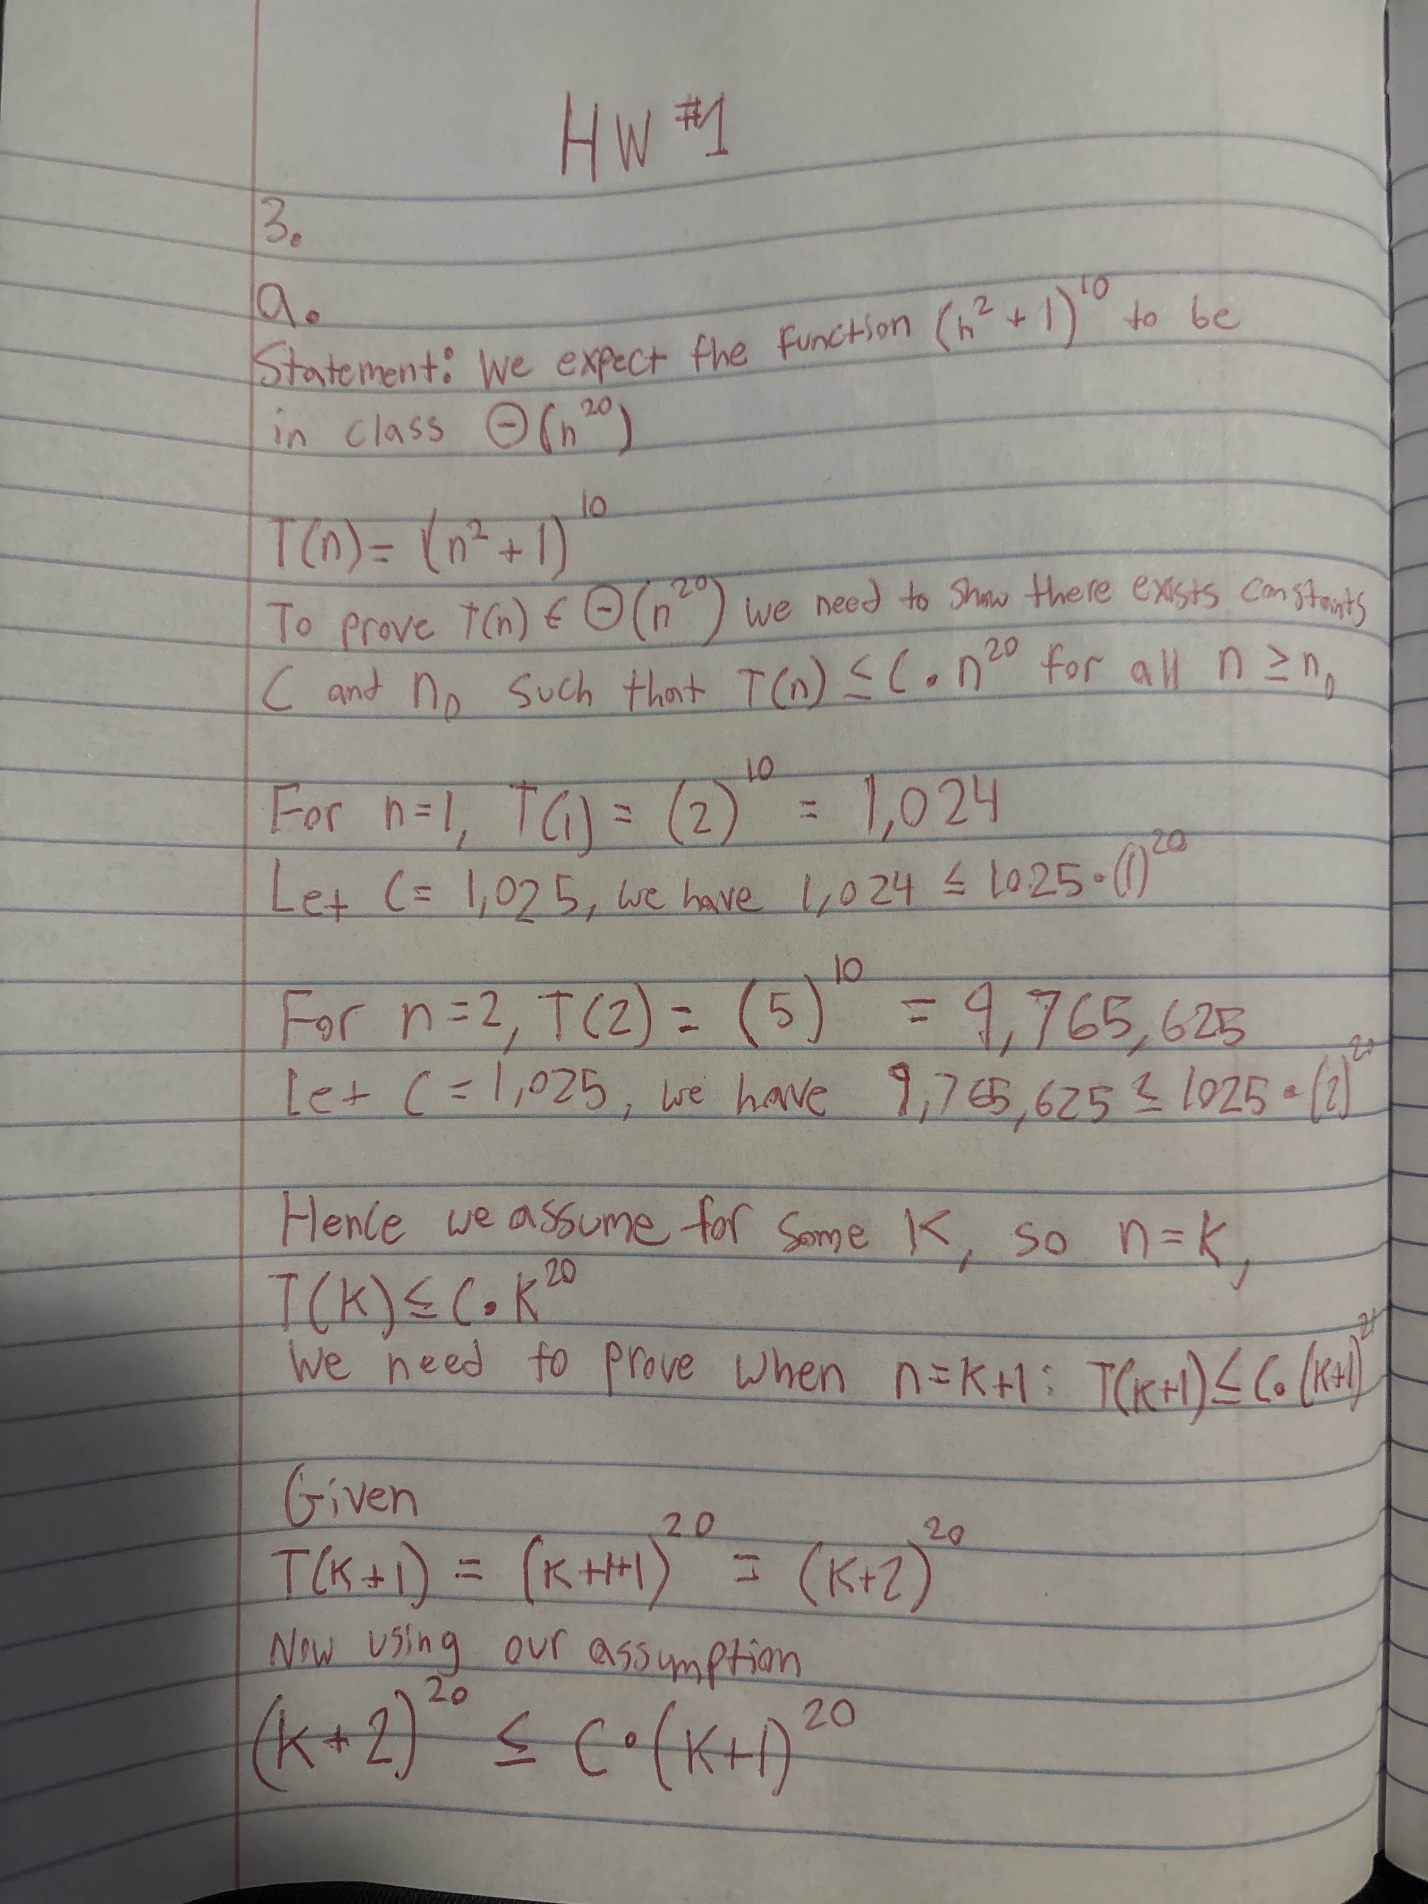 HW #1
3.
a.
Statement: We expect the function (n² + 1)¹⁰ to be
in class Θ(n²⁰)
T(n) = (n² + 1)¹⁰
To prove T(n) ∈ Θ(n²⁰) we need to show there exists constants
C and n₀ such that T(n) ≤ C • n²⁰ for all n ≥ n₀
For n=1, T(1) = (2)¹⁰ = 1,024
Let C = 1,025, we have 1,024 ≤ 1025 • (1)²⁰
For n=2, T(2) = (5)¹⁰ = 9,765,625
Let C = 1,025, we have 9,765,625 ≤ 1025 • (2)²⁰
Hence we assume for some K, so n = K,
T(K) ≤ C • K²⁰
We need to prove when n = K+1 : T(K+1) ≤ C • (K+1)²⁰
Given
T(K+1) = (K+1+1)²⁰ = (K+2)²⁰
Now using our assumption
(K+2)²⁰ ≤ C • (K+1)²⁰